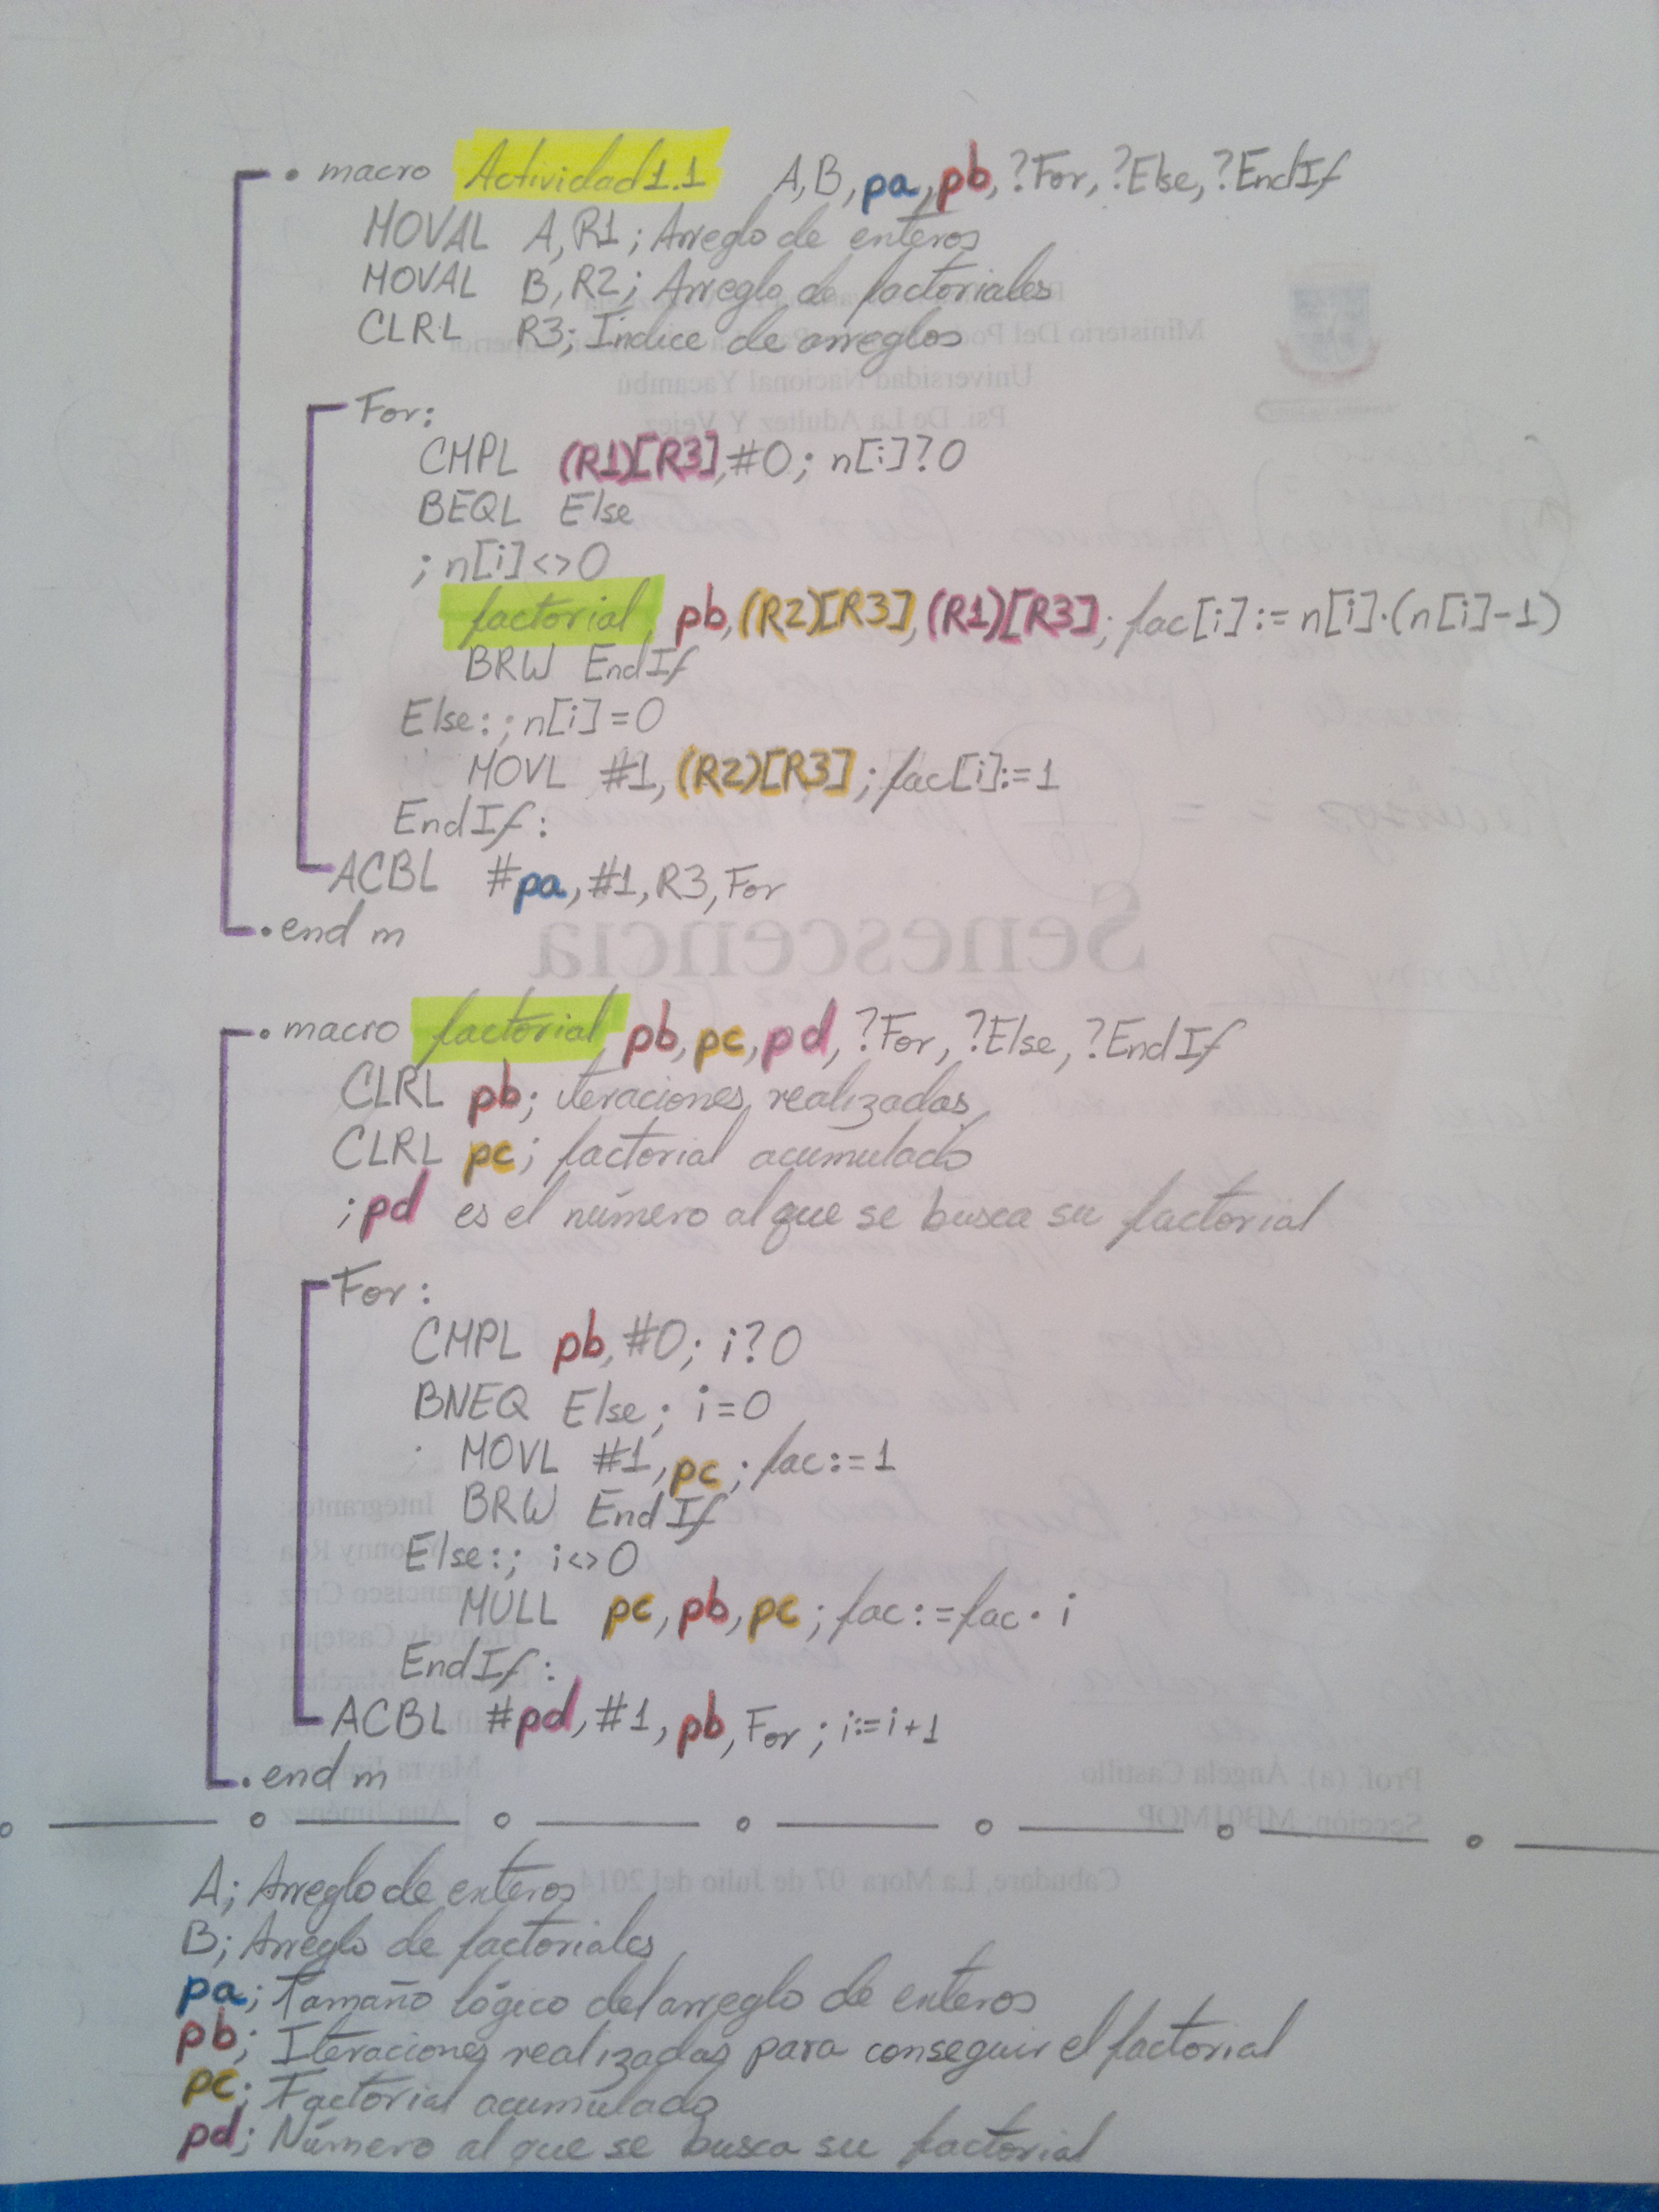 .macro Actividad1.1 A,B,pa,pb,?For,?Else,?EndIf
MOVAL A,R1; Arreglo de enteros
MOVAL B,R2; Arreglo de factoriales
CLRL R3; Indice de arreglos
For:
CMPL (R1)[R3],#0; n[i]?0
BEQL Else
; n[i]<>0
factorial, pb,(R2)[R3],(R1)[R3]; fac[i]:=n[i]·(n[i]-1)
BRW EndIf
Else:; n[i]=0
MOVL #1,(R2)[R3]; fac[i]:=1
EndIf:
ACBL #pa,#1,R3,For
.end m
.macro factorial, pb,pc,pd,?For,?Else,?EndIf
CLRL pb; iteraciones realizadas
CLRL pc; factorial acumulado
;pd es el número al que se busca su factorial
For:
CMPL pb,#0; i?0
BNEQ Else; i=0
; MOVL #1,pc; fac:=1
BRW EndIf
Else:; i<>0
MULL pc,pb,pc; fac:=fac· i
EndIf:
ACBL #pd,#1,pb,For; i:=i+1
.end m
A; Arreglo de enteros
B; Arreglo de factoriales
pa; Tamaño lógico del arreglo de enteros
pb; Iteraciones realizadas para conseguir el factorial
pc; Factorial acumulado
pd; Número al que se busca su factorial
Universidad Nacional Yacambú
Psi. De La Adultez Y Vejez
Senescencia
Integrantes:
Prof. (a). Angela Castillo
Sección: MB01MOP
Cabudare, La Mora 07 de Julio del 2014